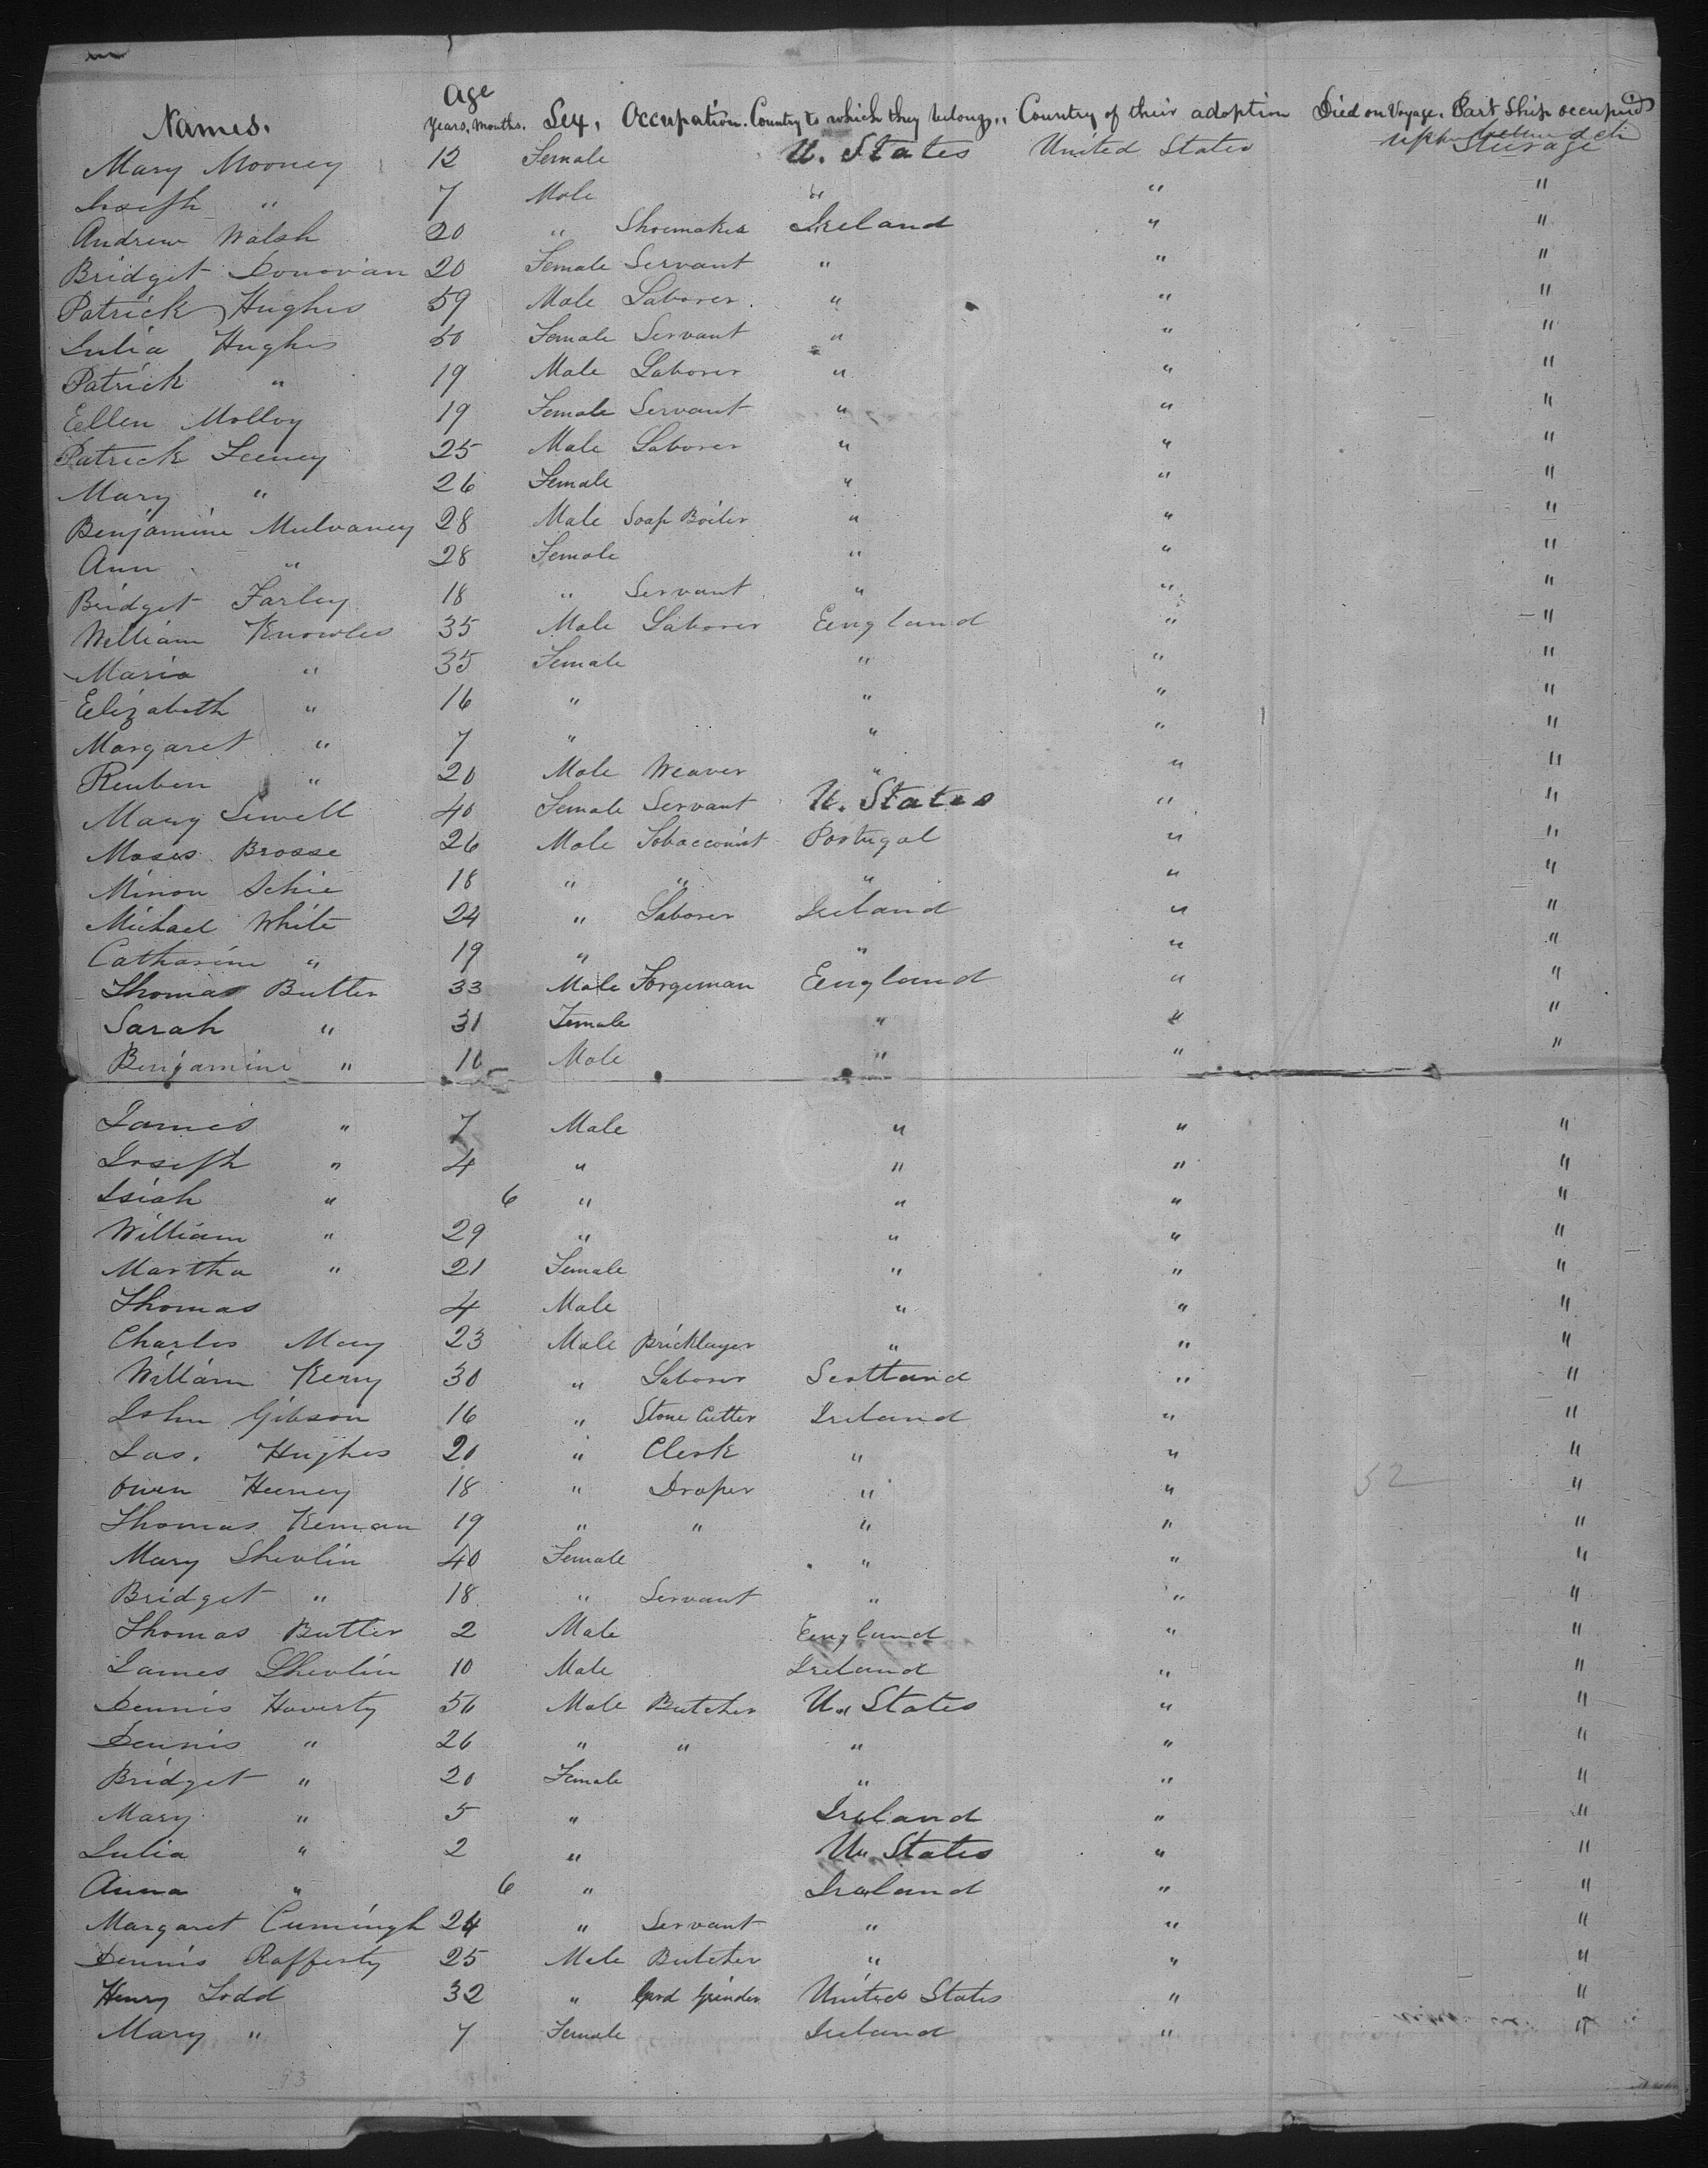 Names. Age Years, Months. Sex, Occupation. Country to which they belong,, Country of their adoption Died on Voyage. Part Ship occupied
Mary Mooney 12 Female U. States United States Steerage
Joseph " 7 Male " " "
Andrew Walsh 20 " Shoemaker Ireland " "
Bridget Donovan 20 Female Servant " " "
Patrick Hughes 59 Male Laborer. " " "
Julia Hughes 50 Female Servant " " "
Patrick " 19 Male Laborer " " "
Ellen Molloy 19 Female Servant " " "
Patrick Feeney 25 Male Laborer " " "
Mary " 26 Female " " "
Benjamine Mulvaney 28 Male Soap Boiler " " "
Ann " 28 Female " " "
Bridget Farley 18 " Servant " " "
William Knowles 35 Male Laborer England " "
Maria " 35 Female " " "
Elizabeth " 16 " " " "
Margaret " 7 " " " "
Reuben " 20 Male Weaver " " "
Mary Sewell 40 Female Servant U. States " "
Moses Brosse 26 Male Tobacconist Portugal " "
Minon Schie 18 " " " " "
Michael White 24 " Laborer Ireland " "
Catharine " 19 " " " "
Thomas Butler 33 Male Forgeman England " "
Sarah " 31 Female " " "
Benjamine " 10 Male " " "
James " 7 Male " " "
Joseph " 4 " " " "
Isiah " 6 " " " "
William " 29 " " " "
Martha " 21 Female " " "
Thomas 4 Male " " "
Charles May 23 Male Bricklayer " " "
William Kerry 30 " Laborer Scotland " "
John Gibson 16 " Stone Cutter Ireland " "
Jas. Hughes 20 " Clerk " " "
Owen Heeney 18 " Draper " " 52 "
Thomas Kernan 19 " " " " "
Mary Shevlin 40 Female " " "
Bridget " 18 " Servant " " "
Thomas Butler 2 Male England " "
James Shevlin 10 Male Ireland " "
Dennis Haverty 56 Male Butcher U. States " "
Dennis " 26 " " " " "
Bridget " 20 Female " " "
Mary " 5 " Ireland " "
Julia " 2 " U. States " "
Anna " 6 " Ireland " "
Margaret Cumingh 24 " Servant " " "
Dennis Rafferty 25 Male Butcher " " "
Henry Todd 32 " Card Grinder United States " "
Mary " 7 Female Ireland " "